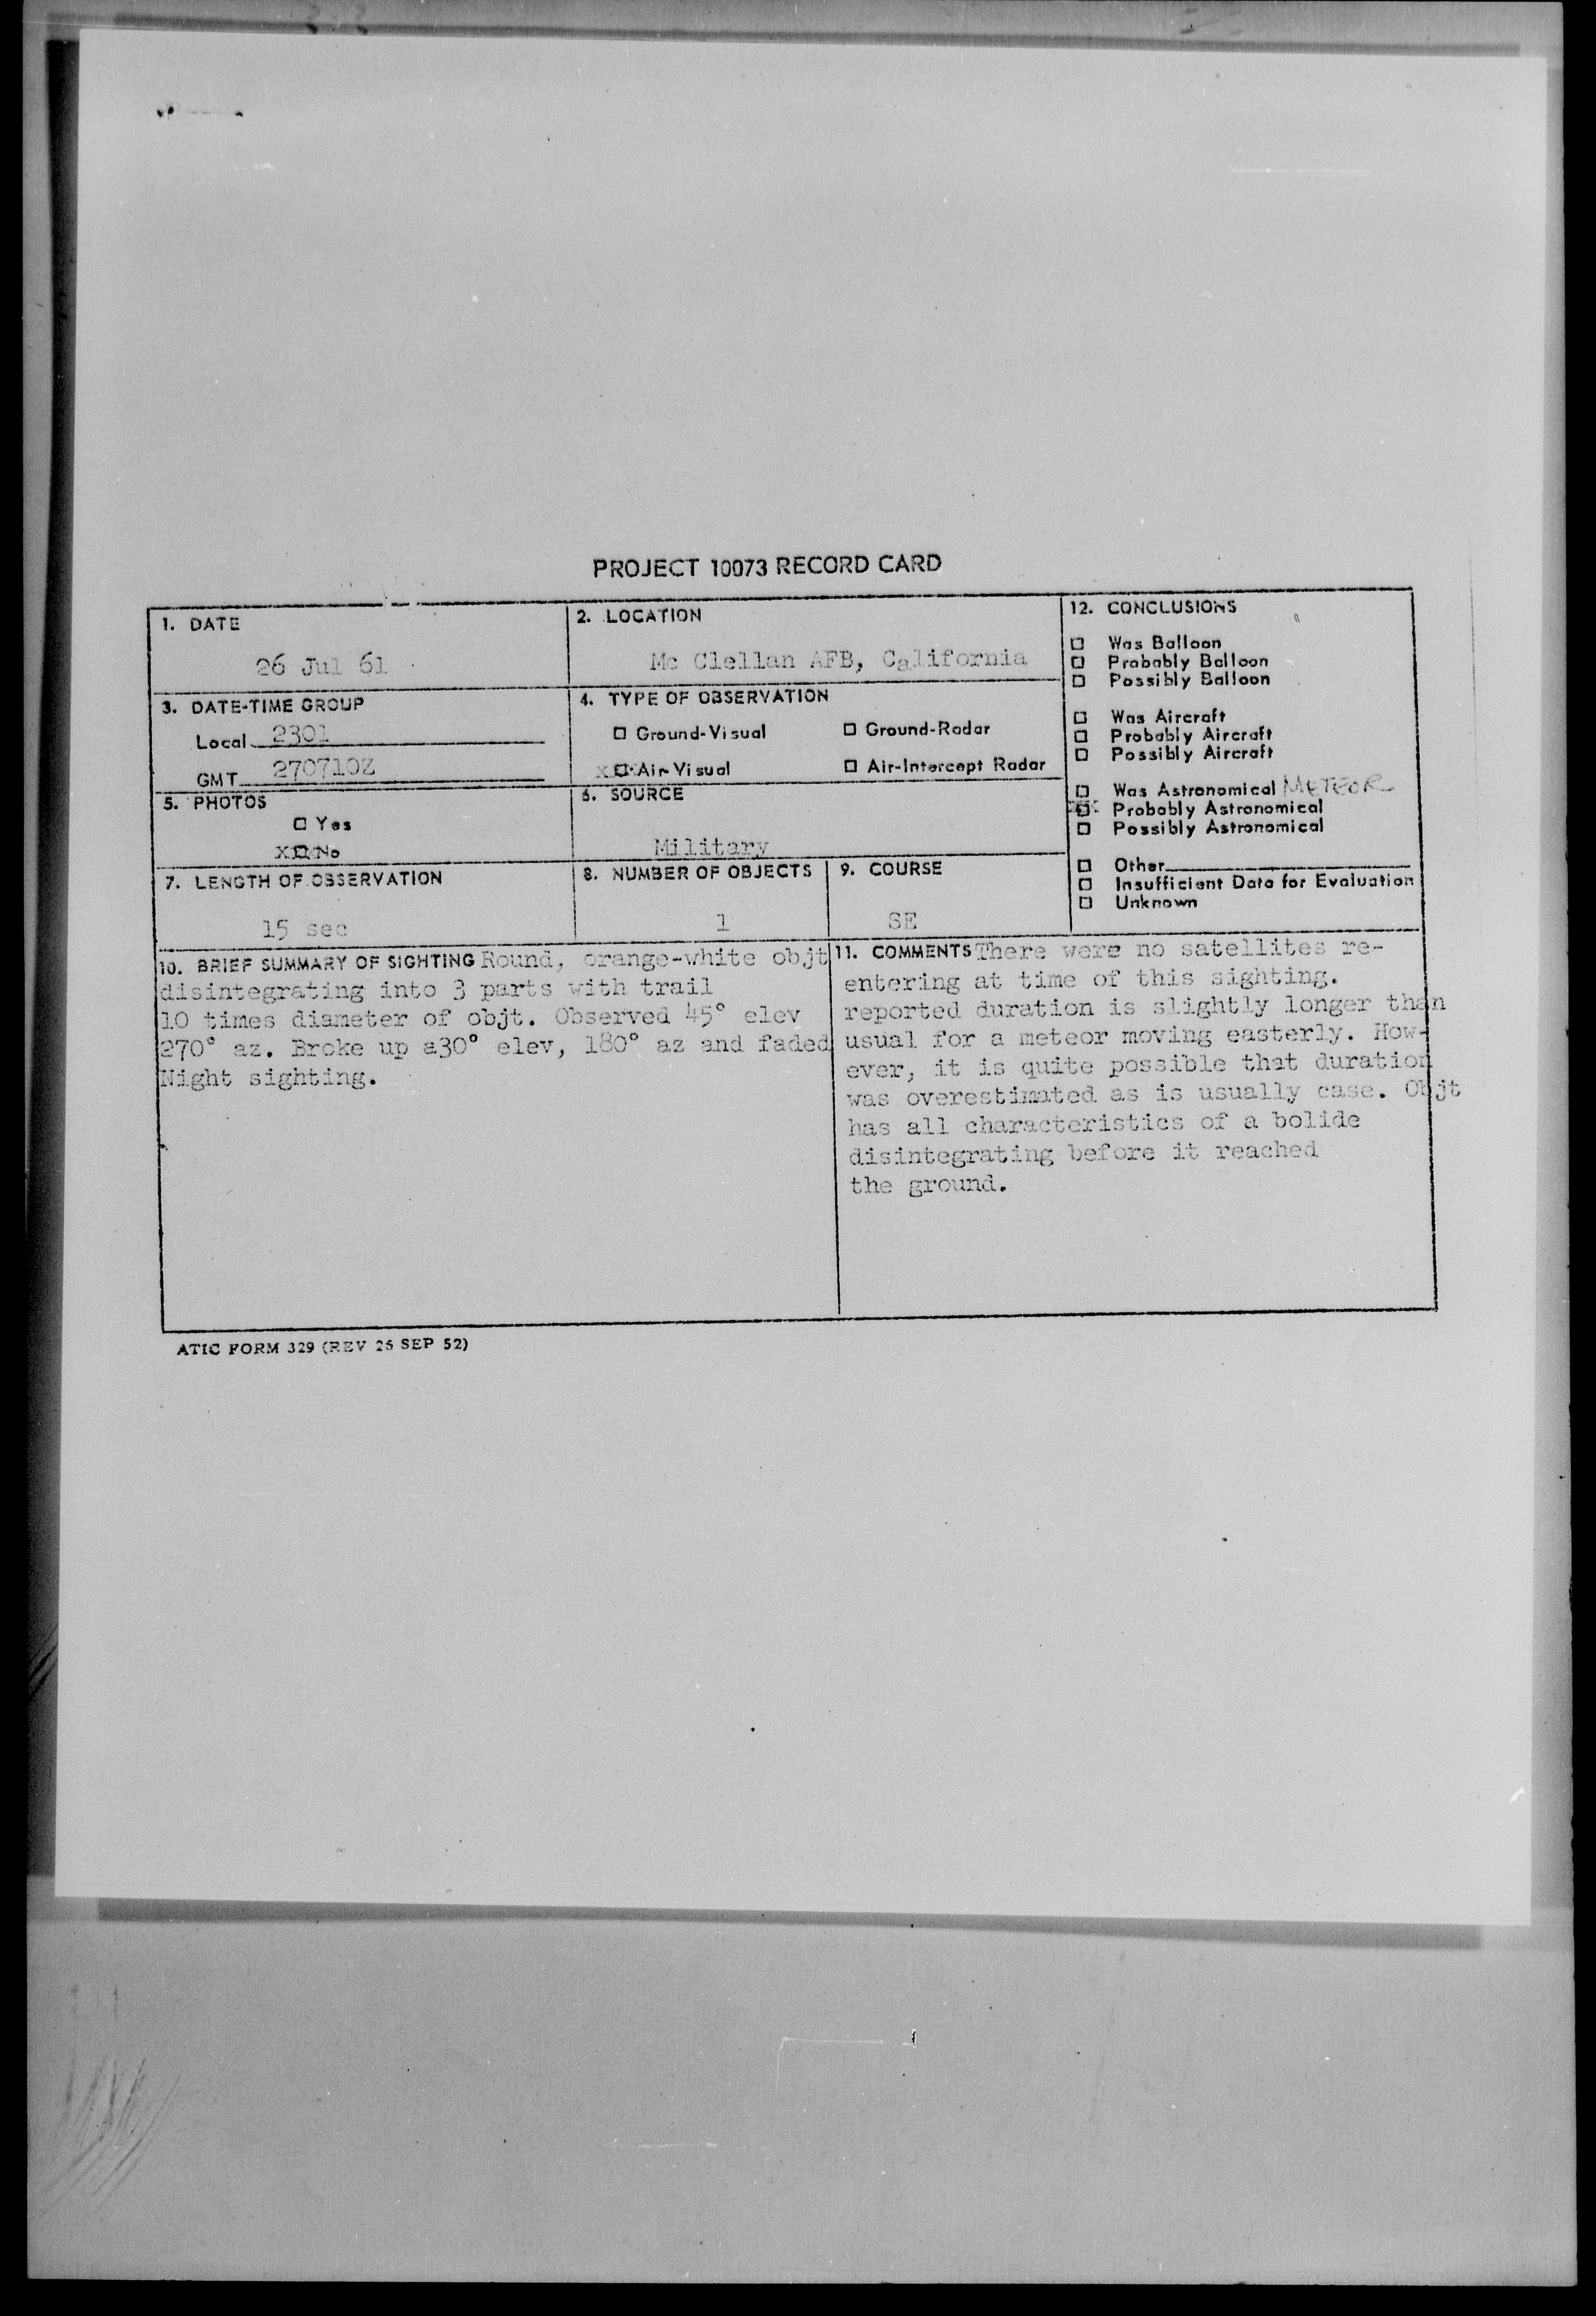 PROJECT 10073 RECORD CARD
1. DATE
26 Jul 61
2. LOCATION
Mc Clellan AFB, California
3. DATE-TIME GROUP
Local 2301
GMT 270710Z
4. TYPE OF OBSERVATION
☐ Ground-Visual ☐ Ground-Radar
X☐ Air-Visual ☐ Air-Intercept Radar
5. PHOTOS
☐ Yes
X☐ No
6. SOURCE
Military
7. LENGTH OF OBSERVATION
15 sec
8. NUMBER OF OBJECTS
1
9. COURSE
SE
10. BRIEF SUMMARY OF SIGHTING Round, orange-white objt
disintegrating into 3 parts with trail
10 times diameter of objt. Observed 45° elev
270° az. Broke up a30° elev, 180° az and faded
Night sighting.
11. COMMENTS There were no satellites re-
entering at time of this sighting.
reported duration is slightly longer than
usual for a meteor moving easterly. How-
ever, it is quite possible that duration
was overestimated as is usually case. Objt
has all characteristics of a bolide
disintegrating before it reached
the ground.
12. CONCLUSIONS
☐ Was Balloon
☐ Probably Balloon
☐ Possibly Balloon
☐ Was Aircraft
☐ Probably Aircraft
☐ Possibly Aircraft
☐ Was Astronomical METEOR
☐ Probably Astronomical
☐ Possibly Astronomical
☐ Other
☐ Insufficient Data for Evaluation
☐ Unknown
ATIC FORM 329 (REV 26 SEP 52)